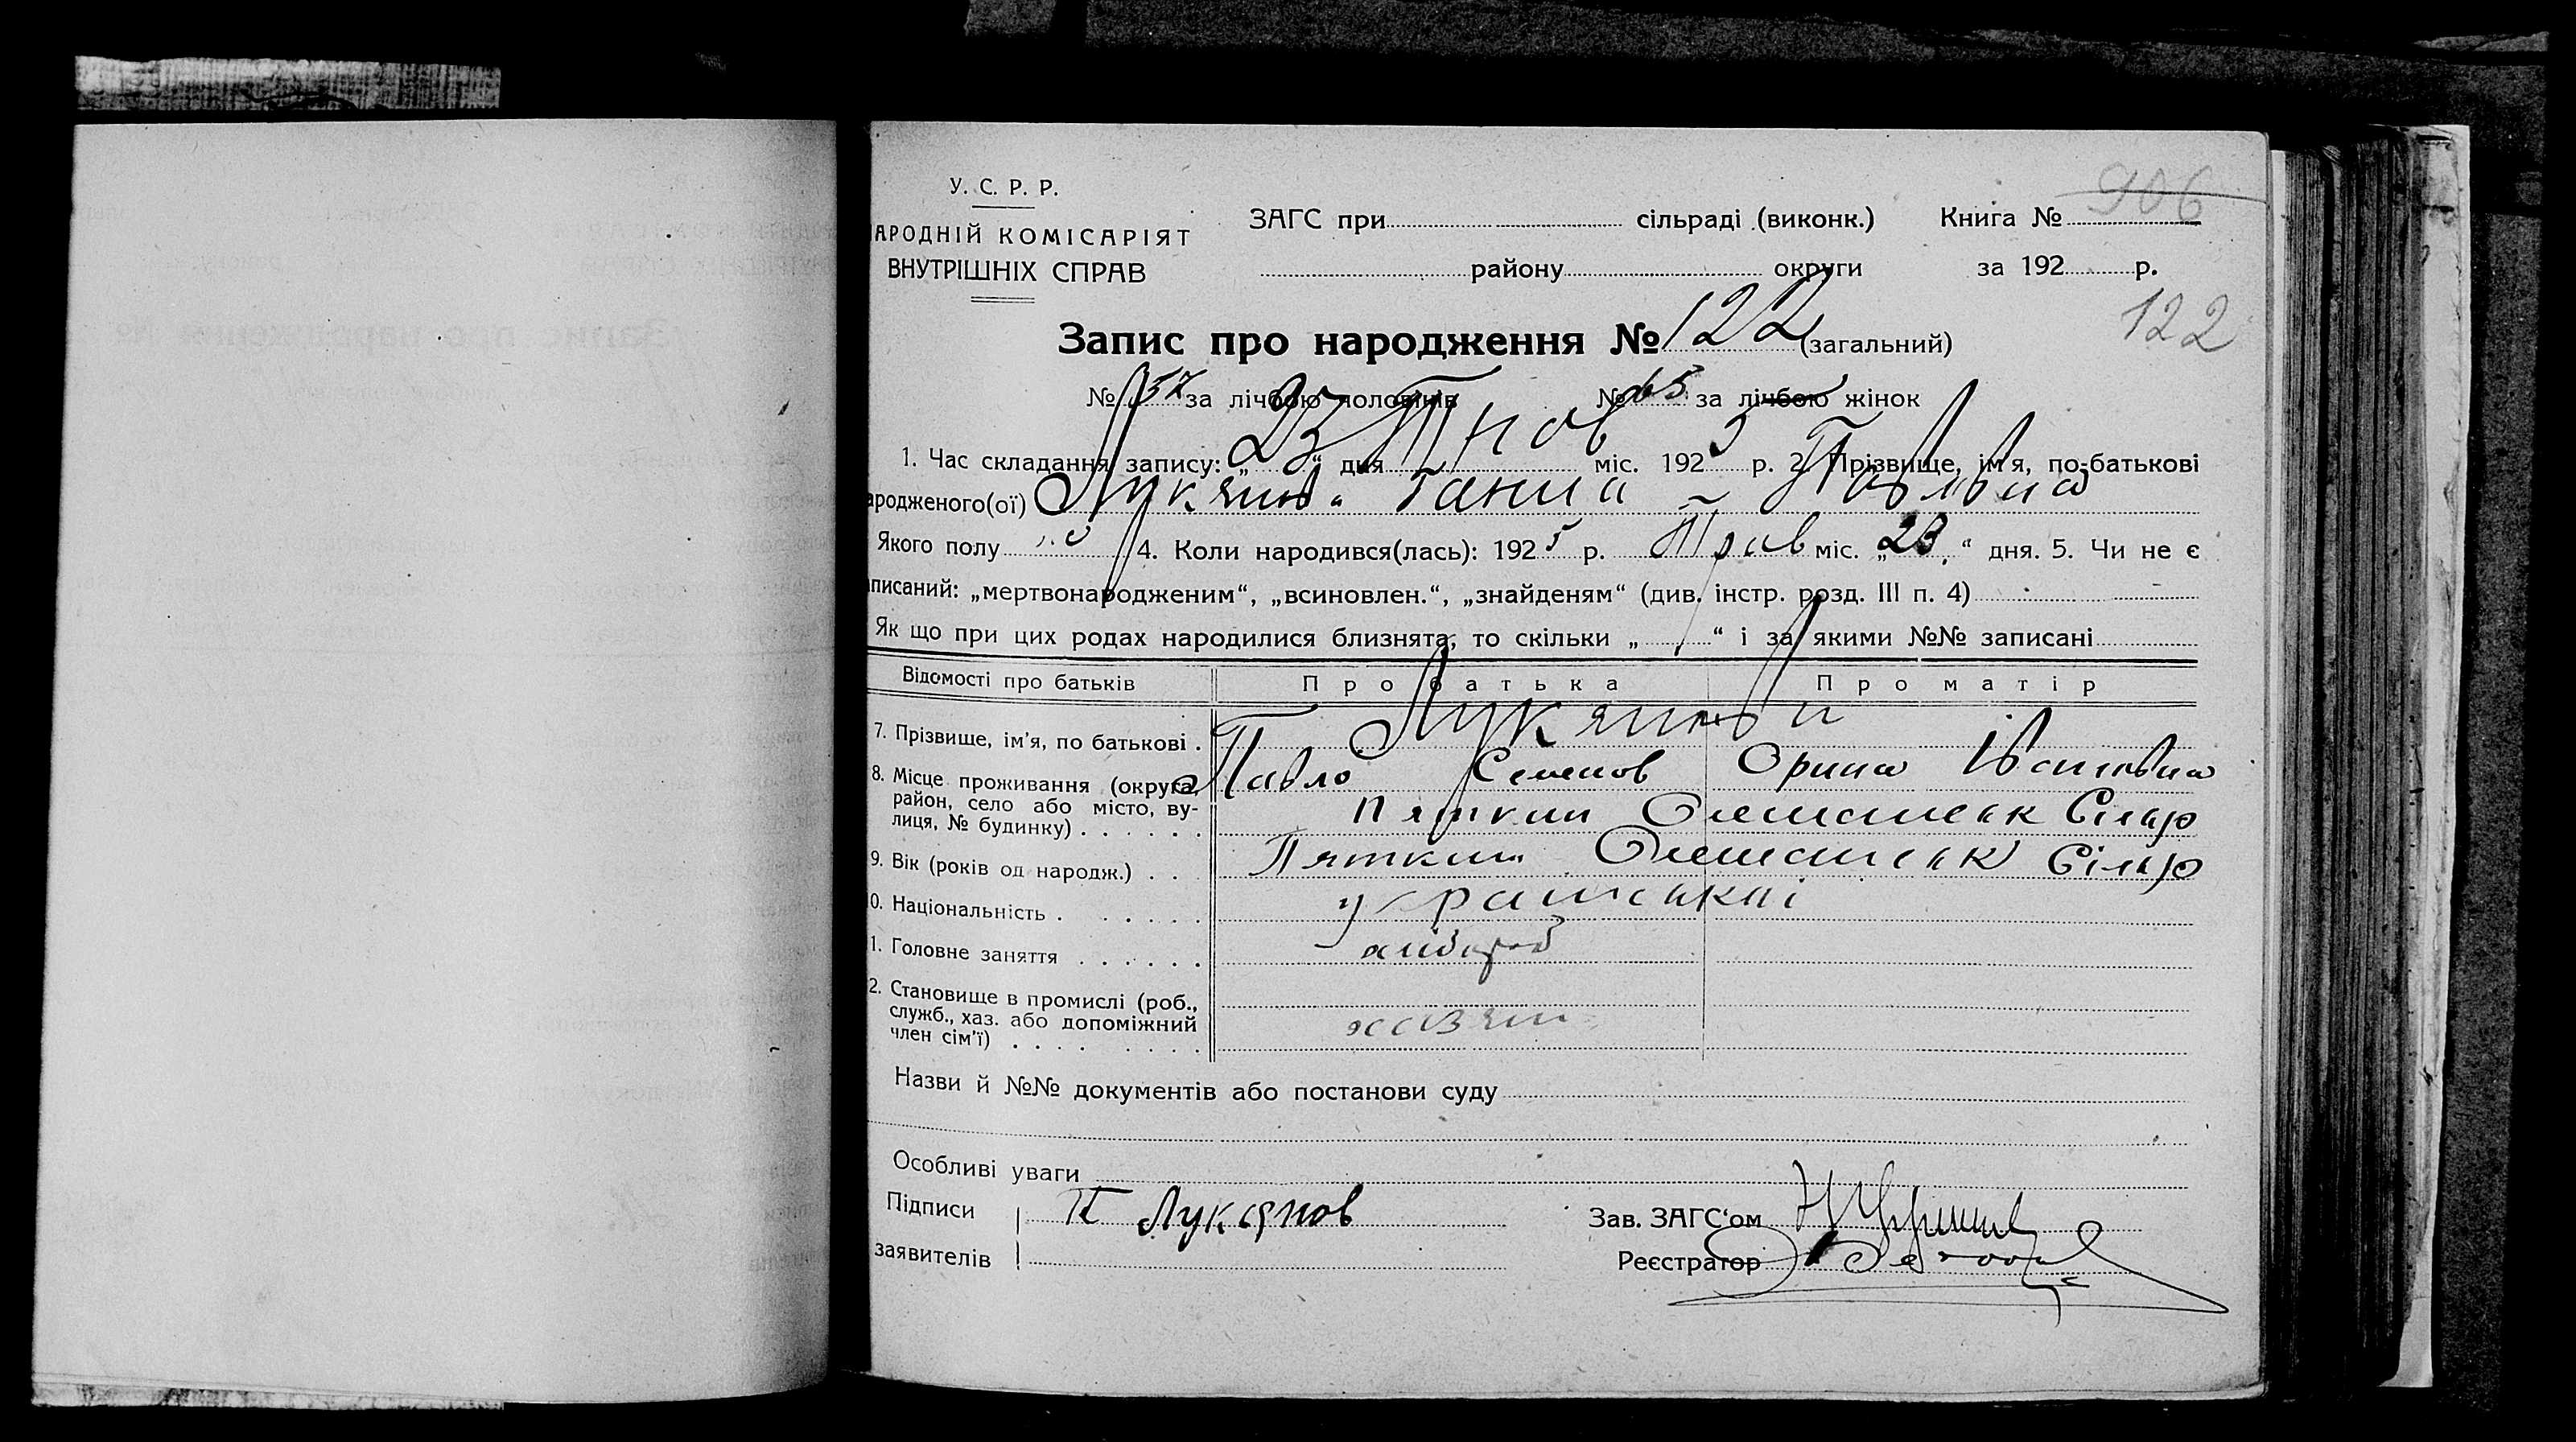 906
У. С. Р. Р.
АРОДНІЙ КОМІСАРІЯТ
ВНУТРІШНІХ СПРАВ
ЗАГС при сільраді (виконк.) Книга №
району округи за 192 р.
122
Запис про народження № 122 (загальний)
№ 57 за лічбою чоловіків № 65 за лічбою жінок
1. Час складання запису: „23“ дня міс. 1925 р. 2. Прізвище, ім'я, по-батькові
ародженого(ої) Лукянова Ганна Павловна
Якого полу 4. Коли народився(лась): 1925 р. Трав міс. „23“ дня. 5. Чи не є
писаний: „мертвонародженим“, „всиновлен.“, „знайденям“ (див. інстр. розд. III п. 4)
Як що при цих родах народилися близнята, то скільки „ “ і за якими №№ записані
Відомості про батьків Про батька Про матір
7. Прізвище, ім'я, по батькові . Лукянови
Павло Семенов Орина Івановна
8. Місце проживання (округа, район, село або місто, вулиця, № будинку)
Пяткин Сільр
9. Вік (років од народж.) . . Пяткин Сільр
0. Національність .
1. Головне заняття
2. Становище в промислі (роб., служб., хаз. або допоміжний член сім'ї) хазяин
Назви й №№ документів або постанови суду
Особливі уваги
Підписи П Лукянов
заявителів
Зав. ЗАГС'ом
Реєстратор